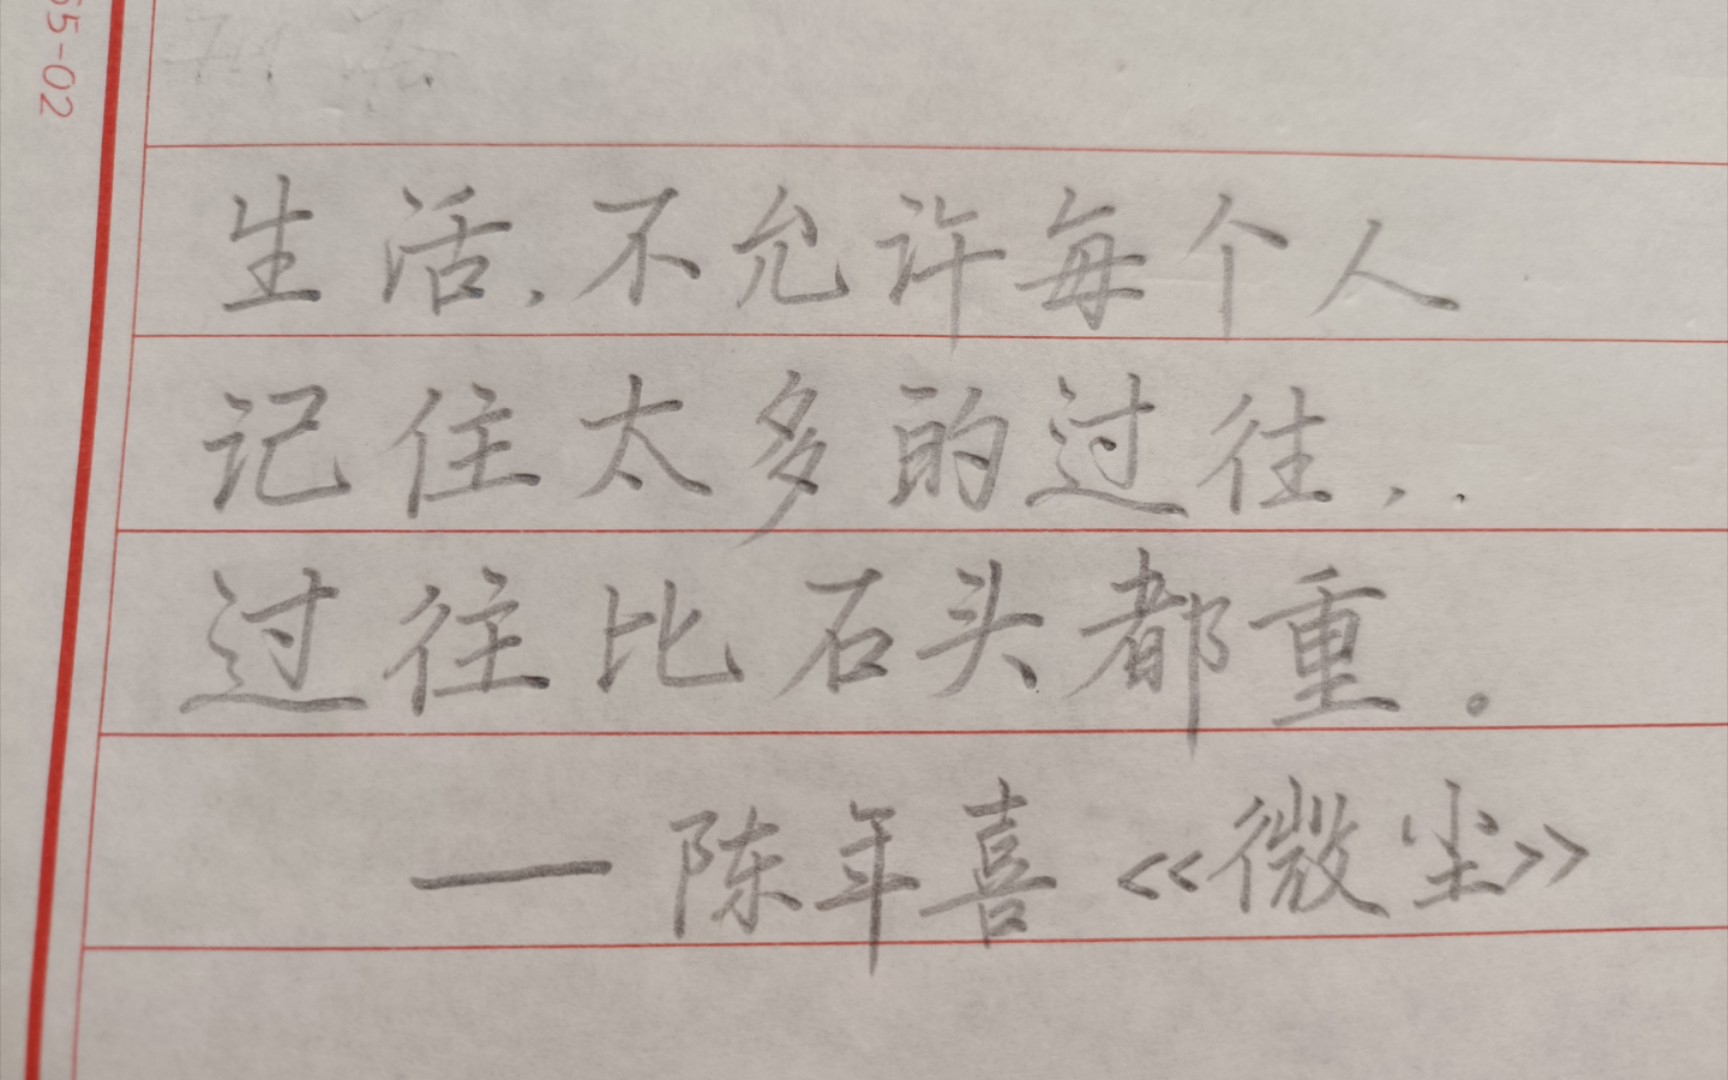 65-02
生活,不允许每个人
记住太多的过往,.
过往比石头都重。
—陈年喜《微尘》